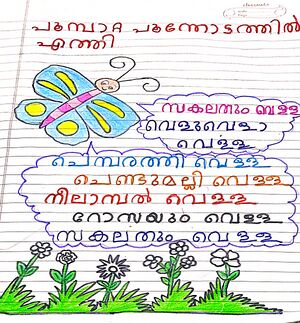 പൂമ്പാറ്റ പൂന്തോട്ടത്തിൽ
എത്തി
സകലതും വെള്ള
വെളുവെളാ
വെള്ള
ചെമ്പരത്തി വെള്ള
ചെണ്ടുമല്ലി വെള്ള
നീലാമ്പൽ വെള്ള
റോസയും വെള്ള
സകലതും വെള്ള